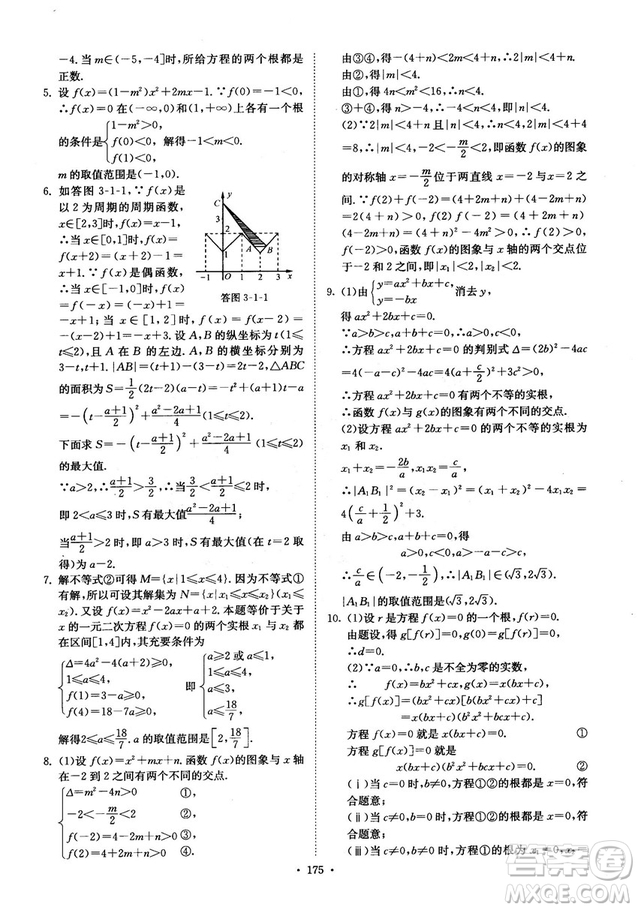 -4.当 m∈(-5,-4]时,所给方程的两个根都是
正数.
5. 设 f(x)=(1-m²)x²+2mx-1.∵f(0)=-1<0.
∴f(x)在(-∞,0)和(1,+∞)上各有一个根
的条件是{1-m²>0, f(0)<0, f(1)<0, 解得-1<m<0.
m 的取值范围是(-1,0).
6. 如答图 3-1-1,∵f(x)是
以 2 为周期的周期函数,
x∈[2,3]时,f(x)=x.
∴当 x∈[0,1]时,f(x)=
f(x+2)=x+2.
∵f(x)是偶函数,
∴当 x∈[-1,0]时,f(x)=
f(-x)=-x+2.
∴当 x∈[1,2]时,f(x)=
-(x-2)+2=-x+4.
y C 3 2 1 A B -1 O 1 2 3 x
答图 3-1-1
的面积为 S=½(2t-2)(a-t)=-t²+(a+1)t-a=
-(t-(a+1)/2)²+(a²-2a+1)/4(1≤t≤2).
下面求 S=-(t-(a+1)/2)²+(a²-2a+1)/4(1≤t≤2)
的最大值.
∵a>2,∴(a+1)/2>3/2.当3/2<(a+1)/2≤2时,
即 2<a≤3 时,S 有最大值(a²-2a+1)/4;
当(a+1)/2>2,即 a>3 时,S 的最大值(在 t=2 时取
得)为 a-2.
7. 解不等式②可得 M={x|1≤x≤4}.因为不等式①
有解,所以不等式①的解集为 N={x|x₁≤x≤x₂}(x₁≤
x₂).又设 f(x)=x²-2ax+a+2.本题等价于关于
x 的一元二次方程 f(x)=0 的两个实根 x₁ 与 x₂ 都
在区间[1,4]内,其充要条件为
{Δ=4a²-4(a+2)≥0, 1≤a≤4, f(1)=3-a≥0, f(4)=18-7a≥0, 即{a≥2或a≤-1, 1≤a≤4, a≤3, a≤18/7.
解得2≤a≤18/7.a 的取值范围是[2,18/7].
8. (1)设 f(x)=x²+mx+n.函数 f(x)的图象与 x 轴
在-2 到 2 之间有两个不同的交点.
{Δ=m²-4n>0 ①
-2<-m/2<2 ②
f(-2)=4-2m+n>0 ③
f(2)=4+2m+n>0 ④
由③④,得-(4+n)<2m<4+n.即 2|m|<4+n.
由②,得-4<m<4,即|m|<4.
由①,得 4n<m²<16,∴n<4.
③+④,得 n>-4,∴-4<n<4,即|n|<4.
(2)∵2|m|<4+n 且|n|<4,∴2|m|<4+n<4+4
=8,∴-2<-m/2<2,即函数 f(x)的图象
的对称轴 x=-m/2位于两直线 x=-2 与 x=2 之
间.∵f(-2)·f(2)=(4-2m+n)(4+2m+n)=
(4+n)²-4m²>0,
∴f(-2)>0,f(2)>0.
∴函数 f(x)的图象与 x 轴的两个交点位
于-2 和 2 之间,即|x₁|<2,|x₂|<2.
9. (1)由{y=ax²+bx+c, y=-bx 消去 y,
得 ax²+2bx+c=0.
∵a>b>c,a+b+c=0,∴a>0,c<0.
∴方程 ax²+2bx+c=0 的判别式 Δ=4b²-4ac
=4(a²+ac+c²)=4[(a+c/2)²+3/4c²]>0.
∴方程 ax²+2bx+c=0 有两个不等的实根.
∴函数 f(x)与 g(x)的图象有两个不同的交点.
(2)设方程 ax²+2bx+c=0 的两个不等的实根为
x₁ 和 x₂.
x₁+x₂=-2b/a,x₁x₂=c/a,
∴|A₁B₁|²=(x₂-x₁)²=(x₂+x₁)²-4x₁x₂=
4(c/a+½)²+3.
由 a>b>c,a+b+c=0,得
a>0,c<0,a>-a-c>c.
∴c/a∈(-2,-½),∴|A₁B₁|∈(√3,2√3).
|A₁B₁|的取值范围是(√3,2√3).
10. (1)设 r 是方程 f(x)=0 的一个根,即 f(r)=0.
由题设,得 g[f(r)]=0,∴g(0)=g[f(r)]=0,
∴d=0.
(2)∵a=0,b,c 是不全为零的实数,
∴ f(x)=bx²+cx=x(bx+c),
∴g[f(x)]=x(bx+c)[bx(bx+c)+c]
=x(bx+c)(b²x²+bcx+c).
方程 f(x)=0 就是 x(bx+c)=0 ①
方程 g[f(x)]=0 就是
x(bx+c)(b²x²+bcx+c)=0 ②
(ⅰ)当 c=0,b≠0时,方程①②的根都为 x=0.符
合题意;
(ⅱ)当 c≠0,b=0时,方程①②的根都为 x=0.符
合题意;
(ⅲ)当 c≠0,b≠0时,方程①的根为
• 175 •